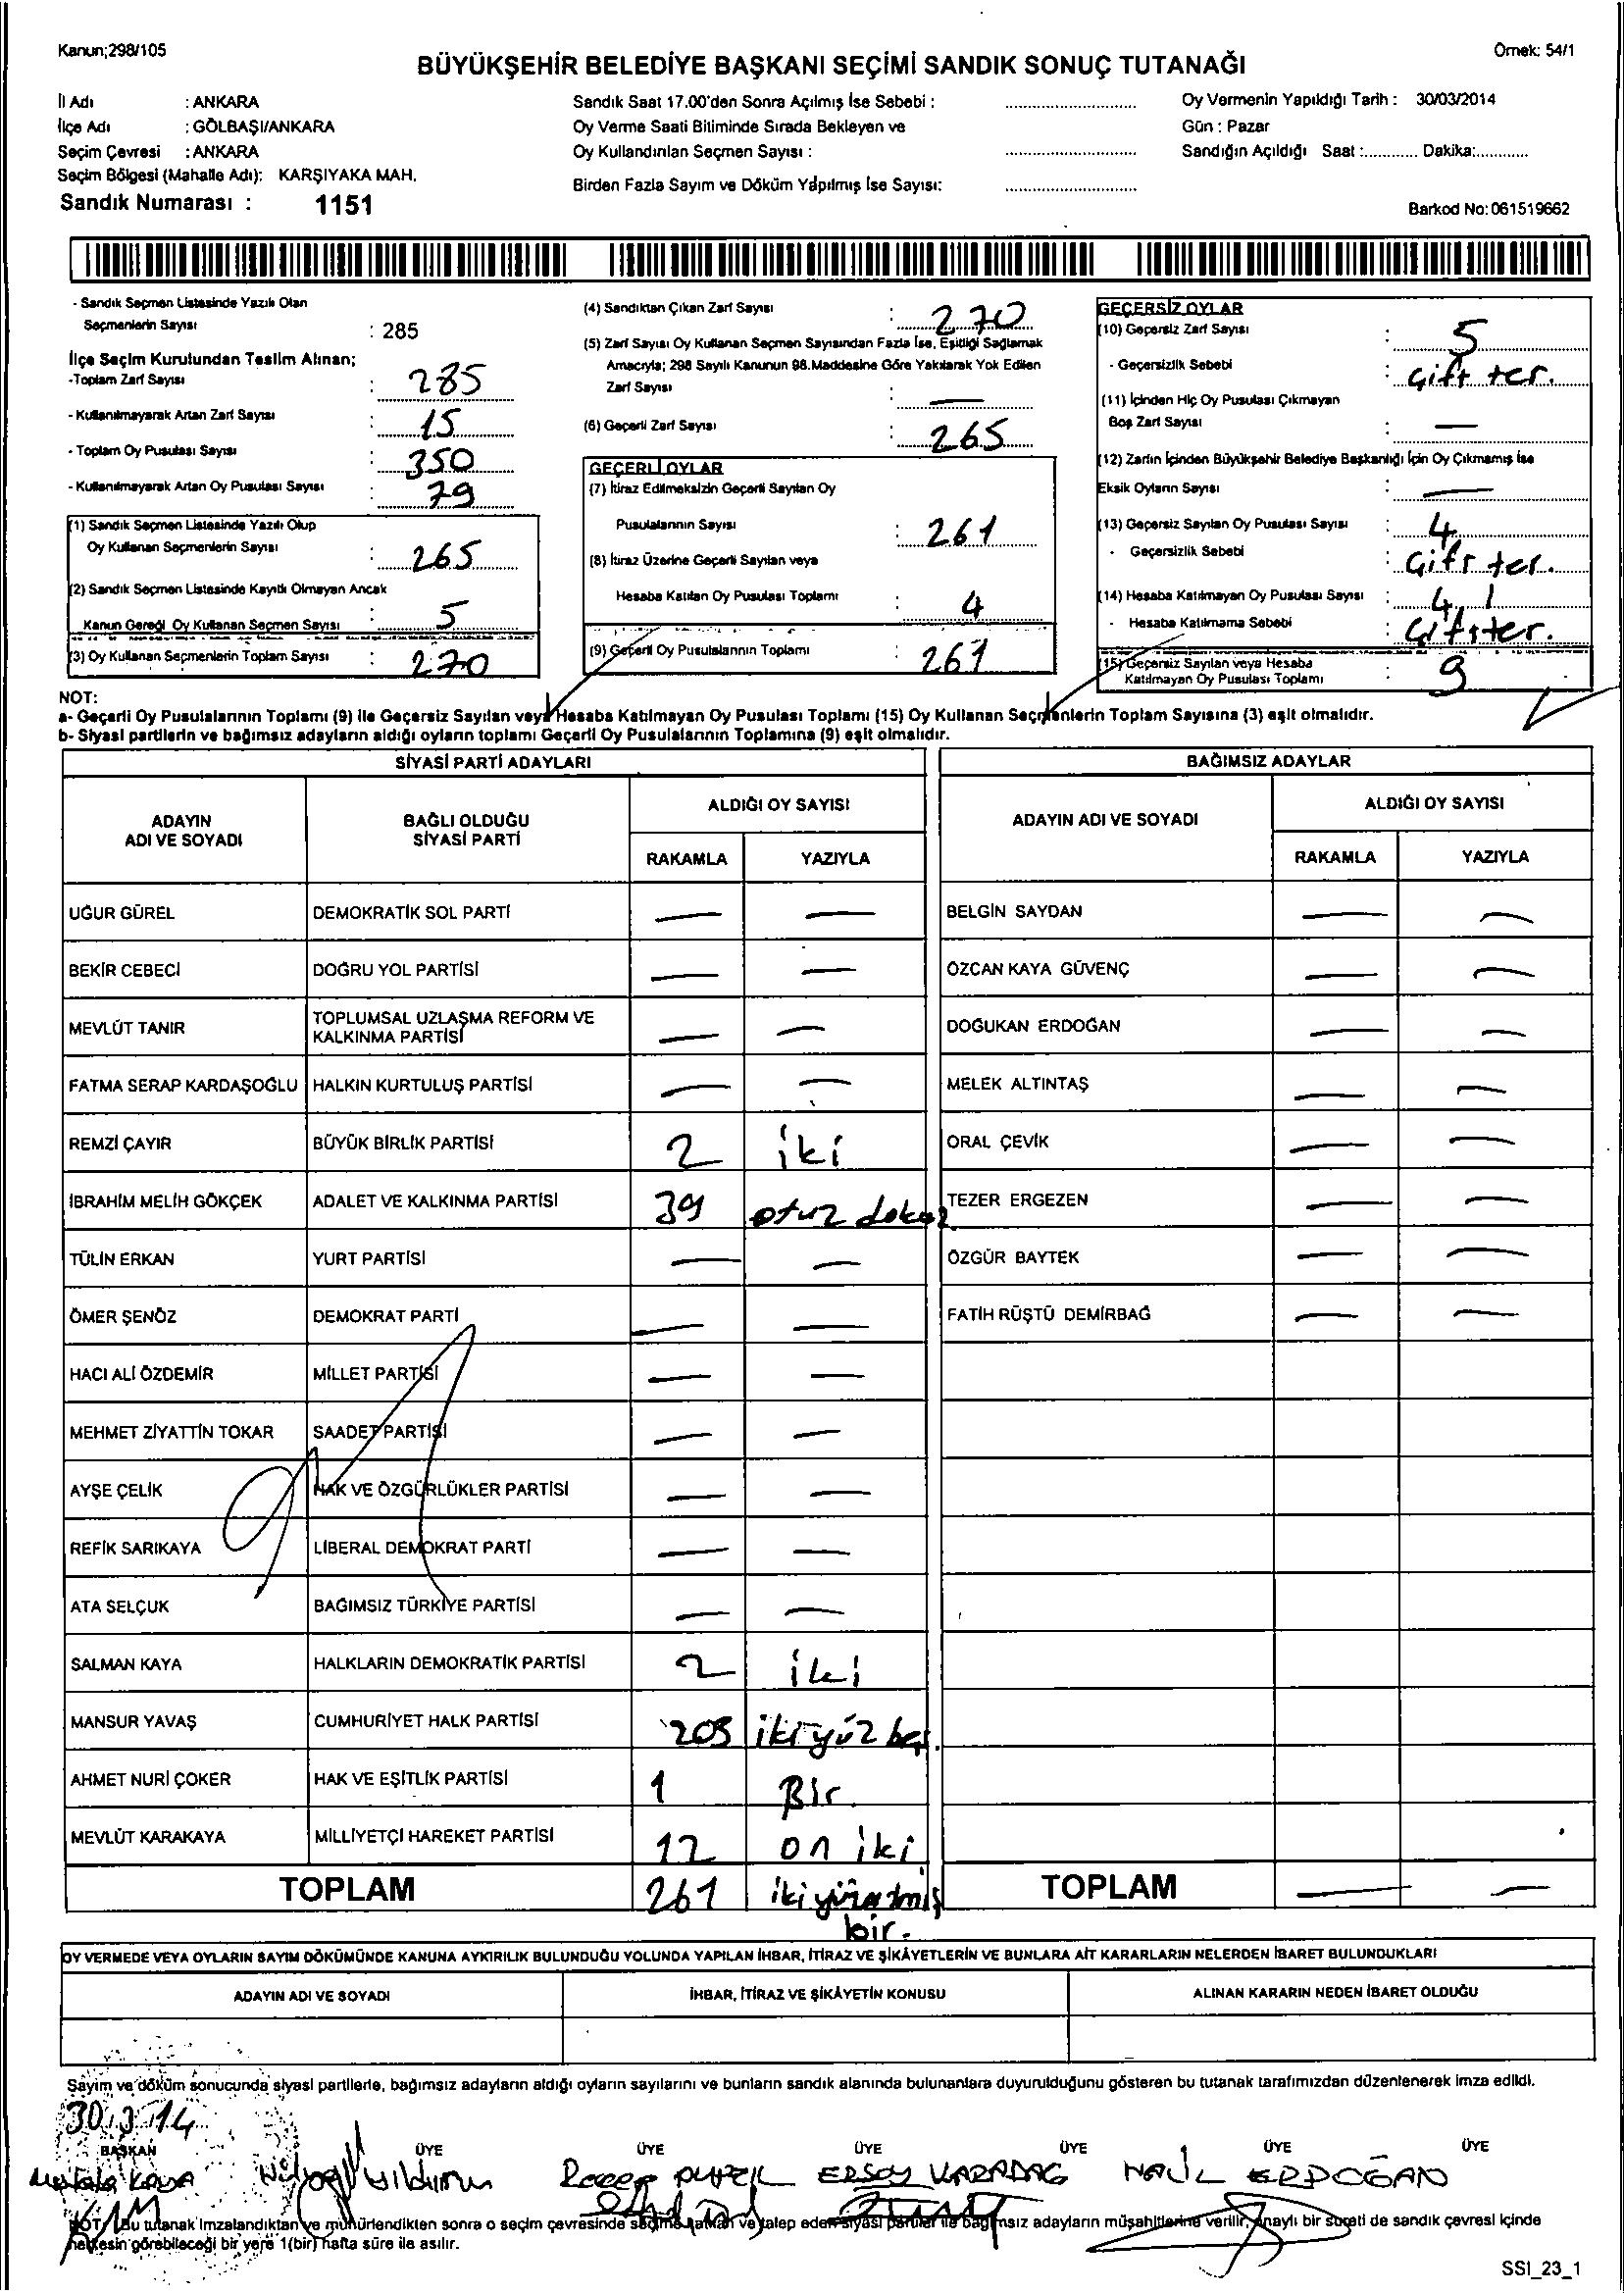 Kanun;298/105
Örnek: 54/1
BÜYÜKŞEHİR BELEDİYE BAŞKANI SEÇİMİ SANDIK SONUÇ TUTANAĞI
İl Adı : ANKARA
İlçe Adı : GÖLBAŞI/ANKARA
Seçim Çevresi : ANKARA
Seçim Bölgesi (Mahalle Adı): KARŞIYAKA MAH.
Sandık Numarası : 1151
Sandık Saat 17.00'den Sonra Açılmış İse Sebebi : ............
Oy Verme Saati Bitiminde Sırada Bekleyen ve
Oy Kullandırılan Seçmen Sayısı : ............
Birden Fazla Sayım ve Döküm Yapılmış İse Sayısı: ............
Oy Vermenin Yapıldığı Tarih : 30/03/2014
Gün : Pazar
Sandığın Açıldığı Saat :............ Dakika:............
Barkod No:061519662
- Sandık Seçmen Listesinde Yazılı Olan
Seçmenlerin Sayısı : 285
İlçe Seçim Kurulundan Teslim Alınan;
-Toplam Zarf Sayısı : 285
- Kullanılmayarak Artan Zarf Sayısı : 15
- Toplam Oy Pusulası Sayısı : 350
- Kullanılmayarak Artan Oy Pusulası Sayısı : 79
(1) Sandık Seçmen Listesinde Yazılı Olup
Oy Kullanan Seçmenlerin Sayısı : 265
(2) Sandık Seçmen Listesinde Kayıtlı Olmayan Ancak
Kanun Gereği Oy Kullanan Seçmen Sayısı : 5
(3) Oy Kullanan Seçmenlerin Toplam Sayısı : 270
(4) Sandıktan Çıkan Zarf Sayısı : 270
(5) Zarf Sayısı Oy Kullanan Seçmen Sayısından Fazla İse, Eşitliği Sağlamak
Amacıyla; 298 Sayılı Kanunun 98.Maddesine Göre Yakılarak Yok Edilen
Zarf Sayısı : —
(6) Geçerli Zarf Sayısı : 265
GEÇERLİ OYLAR
(7) İtiraz Edilmeksizin Geçerli Sayılan Oy
Pusulalarının Sayısı : 261
(8) İtiraz Üzerine Geçerli Sayılan veya
Hesaba Katılan Oy Pusulası Toplamı : 4
(9) Geçerli Oy Pusulalarının Toplamı : 261
GEÇERSİZ OYLAR
(10) Geçersiz Zarf Sayısı : 5
- Geçersizlik Sebebi : Çift ter.
(11) İçinden Hiç Oy Pusulası Çıkmayan
Boş Zarf Sayısı : —
(12) Zarfın İçinden Büyükşehir Belediye Başkanlığı İçin Oy Çıkmamış İse
Eksik Oyların Sayısı : —
(13) Geçersiz Sayılan Oy Pusulası Sayısı : 4
- Geçersizlik Sebebi : Çift ter.
(14) Hesaba Katılmayan Oy Pusulası Sayısı : 4
- Hesaba Katılmama Sebebi : Çift ter.
(15) Geçersiz Sayılan veya Hesaba
Katılmayan Oy Pusulası Toplamı : 9
NOT:
a- Geçerli Oy Pusulalarının Toplamı (9) ile Geçersiz Sayılan veya Hesaba Katılmayan Oy Pusulası Toplamı (15) Oy Kullanan Seçmenlerin Toplam Sayısına (3) eşit olmalıdır.
b- Siyasi partilerin ve bağımsız adayların aldığı oyların toplamı Geçerli Oy Pusulalarının Toplamına (9) eşit olmalıdır.
SİYASİ PARTİ ADAYLARI
ADAYIN ADI VE SOYADI
BAĞLI OLDUĞU SİYASİ PARTİ
ALDIĞI OY SAYISI
RAKAMLA YAZIYLA
UĞUR GÜREL DEMOKRATİK SOL PARTİ — —
BEKİR CEBECİ DOĞRU YOL PARTİSİ — —
MEVLÜT TANIR TOPLUMSAL UZLAŞMA REFORM VE KALKINMA PARTİSİ — —
FATMA SERAP KARDAŞOĞLU HALKIN KURTULUŞ PARTİSİ — —
REMZİ ÇAYIR BÜYÜK BİRLİK PARTİSİ 2 iki
İBRAHİM MELİH GÖKÇEK ADALET VE KALKINMA PARTİSİ 39 otuz dokuz
TÜLİN ERKAN YURT PARTİSİ — —
ÖMER ŞENÖZ DEMOKRAT PARTİ — —
HACI ALİ ÖZDEMİR MİLLET PARTİSİ — —
MEHMET ZİYATTİN TOKAR SAADET PARTİSİ — —
AYŞE ÇELİK HAK VE ÖZGÜRLÜKLER PARTİSİ — —
REFİK SARIKAYA LİBERAL DEMOKRAT PARTİ — —
ATA SELÇUK BAĞIMSIZ TÜRKİYE PARTİSİ — —
SALMAN KAYA HALKLARIN DEMOKRATİK PARTİSİ 2 iki
MANSUR YAVAŞ CUMHURİYET HALK PARTİSİ 205 iki yüz beş.
AHMET NURİ ÇOKER HAK VE EŞİTLİK PARTİSİ 1 Bir
MEVLÜT KARAKAYA MİLLİYETÇİ HAREKET PARTİSİ 12 on iki
TOPLAM 261 iki yüz atmış bir.
BAĞIMSIZ ADAYLAR
ADAYIN ADI VE SOYADI
ALDIĞI OY SAYISI
RAKAMLA YAZIYLA
BELGİN SAYDAN — —
ÖZCAN KAYA GÜVENÇ — —
DOĞUKAN ERDOĞAN — —
MELEK ALTINTAŞ — —
ORAL ÇEVİK — —
TEZER ERGEZEN — —
ÖZGÜR BAYTEK — —
FATİH RÜŞTÜ DEMİRBAĞ — —
TOPLAM — —
OY VERMEDE VEYA OYLARIN SAYIM DÖKÜMÜNDE KANUNA AYKIRILIK BULUNDUĞU YOLUNDA YAPILAN İHBAR, İTİRAZ VE ŞİKÂYETLERİN VE BUNLARA AİT KARARLARIN NELERDEN İBARET BULUNDUKLARI
ADAYIN ADI VE SOYADI
İHBAR, İTİRAZ VE ŞİKÂYETİN KONUSU
ALINAN KARARIN NEDEN İBARET OLDUĞU
Sayım ve döküm sonucunda siyasi partilerle, bağımsız adayların aldığı oyların sayılarını ve bunların sandık alanında bulunanlara duyurulduğunu gösteren bu tutanak tarafımızdan düzenlenerek imza edildi.
30.3.14
BAŞKAN ÜYE ÜYE ÜYE ÜYE ÜYE ÜYE
Mustafa KAYA Yıldırım Recep ERSOY KARADAĞ HALİL ERDOĞAN
NOT: Bu tutanak imzalandıktan ve mühürlendikten sonra o seçim çevresinde seçime katılan ve talep eden siyasi partiler ile bağımsız adayların müşahitlerine verilir, onaylı bir sureti de sandık çevresi içinde
herkesin görebileceği bir yere 1(bir) hafta süre ile asılır.
SSI_23_1